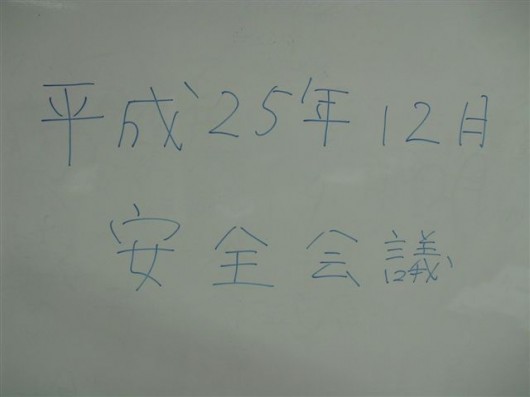 平成25年12月
安全会議